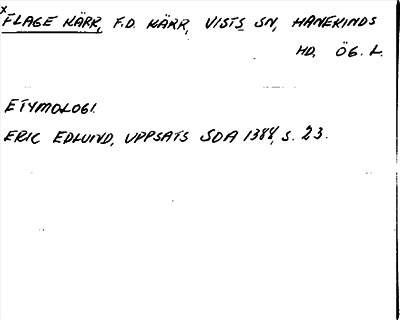 ×FLAGE KÄRR, F.D. KÄRR, VISTS SN, HANEKINDS
HD, ÖG. L.
ETYMOLOGI.
ERIC EDLUND, UPPSATS SOA 1384, S. 23.